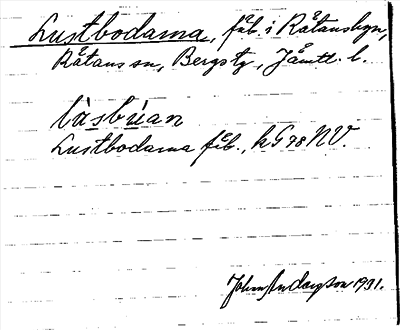 Lustbodarna, fäb. i Råtansbyn,
Råtans sn, Bergs tg, Jämtl. l.
làsbúan
Lustbodarna fäb., kG 78 NV.
John Anderson 1931.